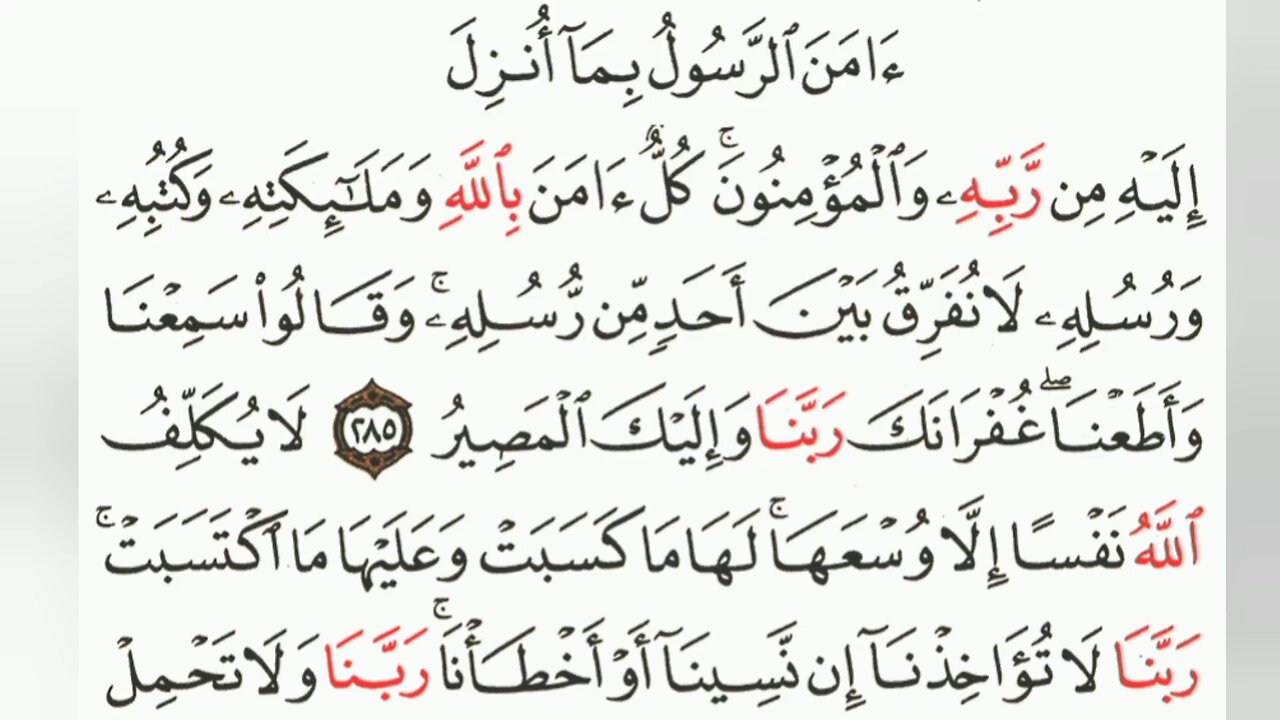 ءَامَنَ ٱلرَّسُولُ بِمَآ أُنزِلَ
إِلَيْهِ مِن رَّبِّهِۦ وَٱلْمُؤْمِنُونَۚ كُلٌّ ءَامَنَ بِٱللَّهِ وَمَلَٰٓئِكَتِهِۦ وَكُتُبِهِۦ
وَرُسُلِهِۦ لَا نُفَرِّقُ بَيْنَ أَحَدٍ مِّن رُّسُلِهِۦۚ وَقَالُوا۟ سَمِعْنَا
وَأَطَعْنَاۖ غُفْرَانَكَ رَبَّنَا وَإِلَيْكَ ٱلْمَصِيرُ ٢٨٥ لَا يُكَلِّفُ
ٱللَّهُ نَفْسًا إِلَّا وُسْعَهَاۚ لَهَا مَا كَسَبَتْ وَعَلَيْهَا مَا ٱكْتَسَبَتْۚ
رَبَّنَا لَا تُؤَاخِذْنَآ إِن نَّسِينَآ أَوْ أَخْطَأْنَاۚ رَبَّنَا وَلَا تَحْمِلْ